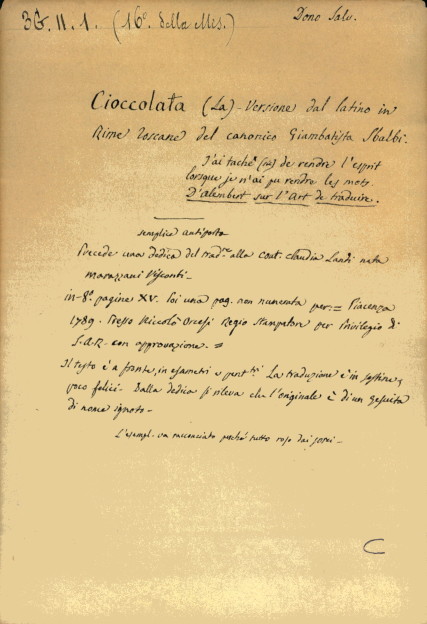 36. II. 1. (16º della Mis.) Dono Salv.
Cioccolata (La) - Versione dal latino in
Rime Toscane del canonico Giambatista Sbalbi.
J'ai taché (sic) de rendre l'esprit
lorsque je n'ai pu rendre les mots
D'Alembert sur l'Art de traduire.
semplice antiporta
Precede una dedica del trad.re alla cont. claudia Landi nata
marazzani Visconti -
in-8º pagine XV. poi una pag. non numerata per := Piacenza
1789. Presso Niccolò Orcesi Regio Stampatore per Privilegio di
S.A.R. con approvazione. =
Il testo è a fronte, in esametri e La traduzione è in sestine,
poco felici - Dalla dedica si rileva che l'originale è di un gesuita
di nome ignoto -
L'esempl. va racconciato perchè tutto roso dai sorci -
C